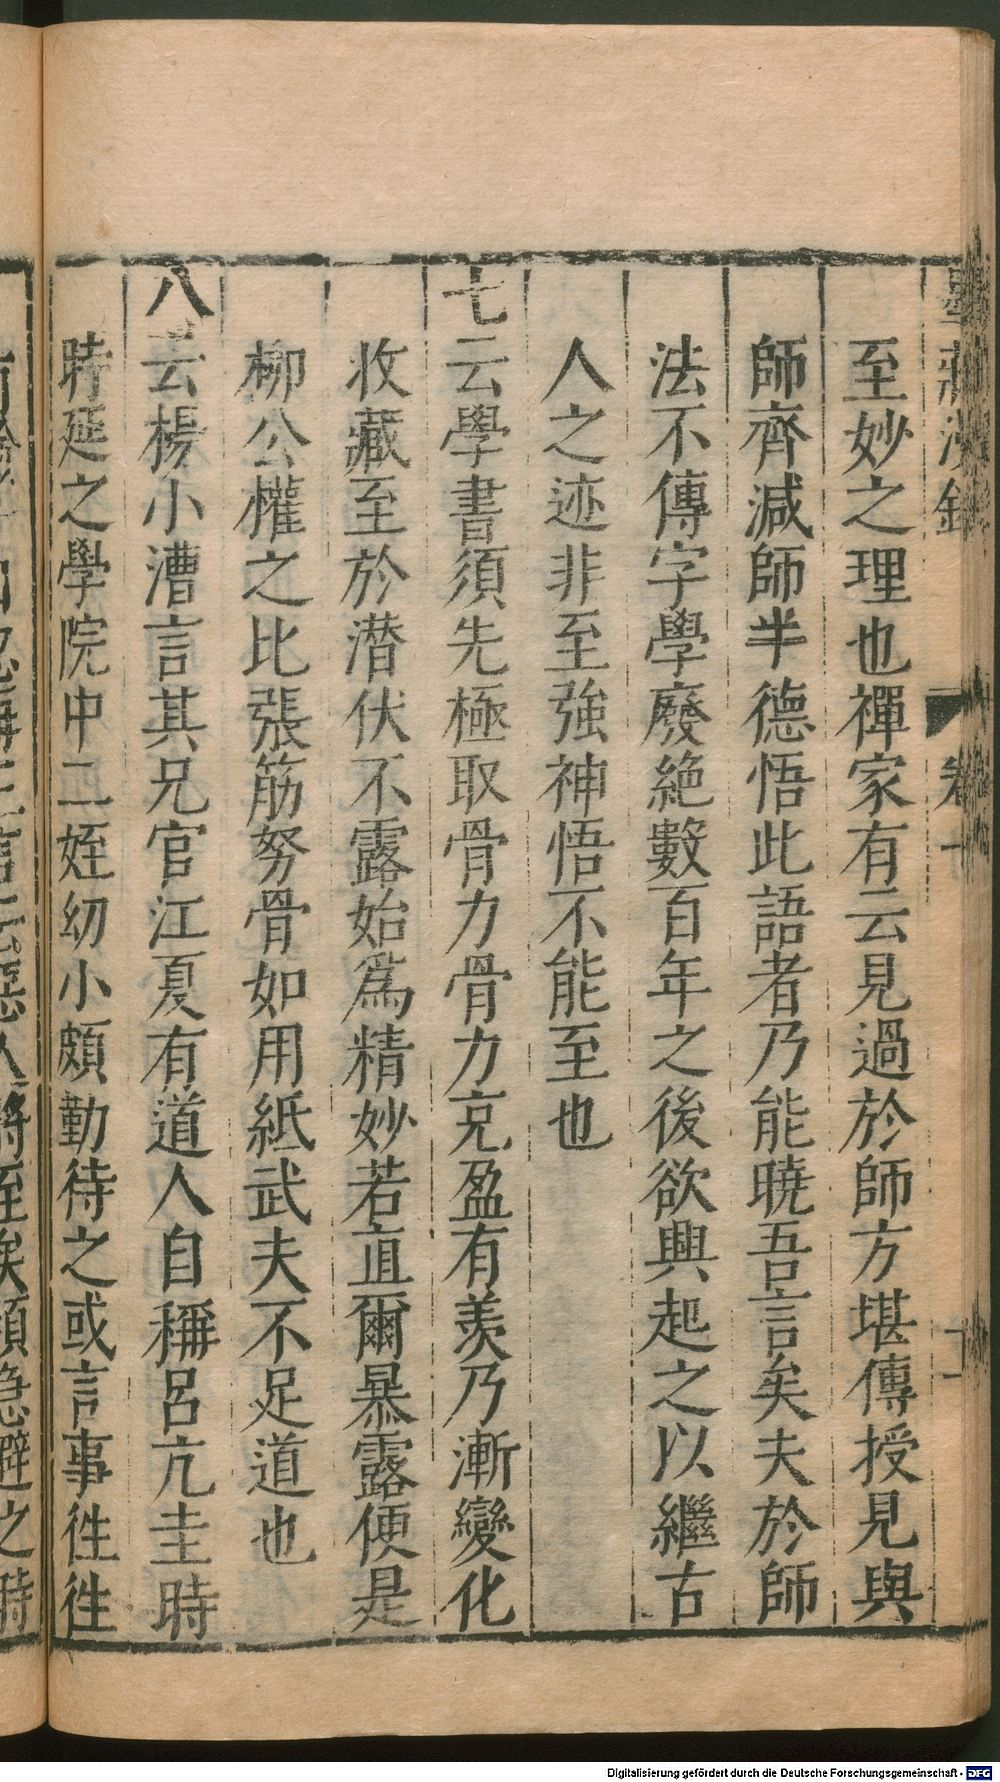 墨莊漫錄
卷十
十一
至妙之理也禪家有云見過於師方堪傳授見與
師齊減師半德悟此語者乃能曉吾言矣夫於師
法不傳字學廢絶數百年之後欲興起之以繼古
人之迹非至強神悟不能至也
七云學書須先極取骨力骨力充盈有羨乃漸變化
收藏至於潛伏不露始爲精妙若直爾暴露便是
柳公權之比張筋努骨如用紙武夫不足道也
八云楊小漕言其兄官江夏有道人自稱呂亢圭時
時延之學院中二姪幼小頗勤待之或言事徃徃
Digitalisierung gefördert durch die Deutsche Forschungsgemeinschaft - DFG